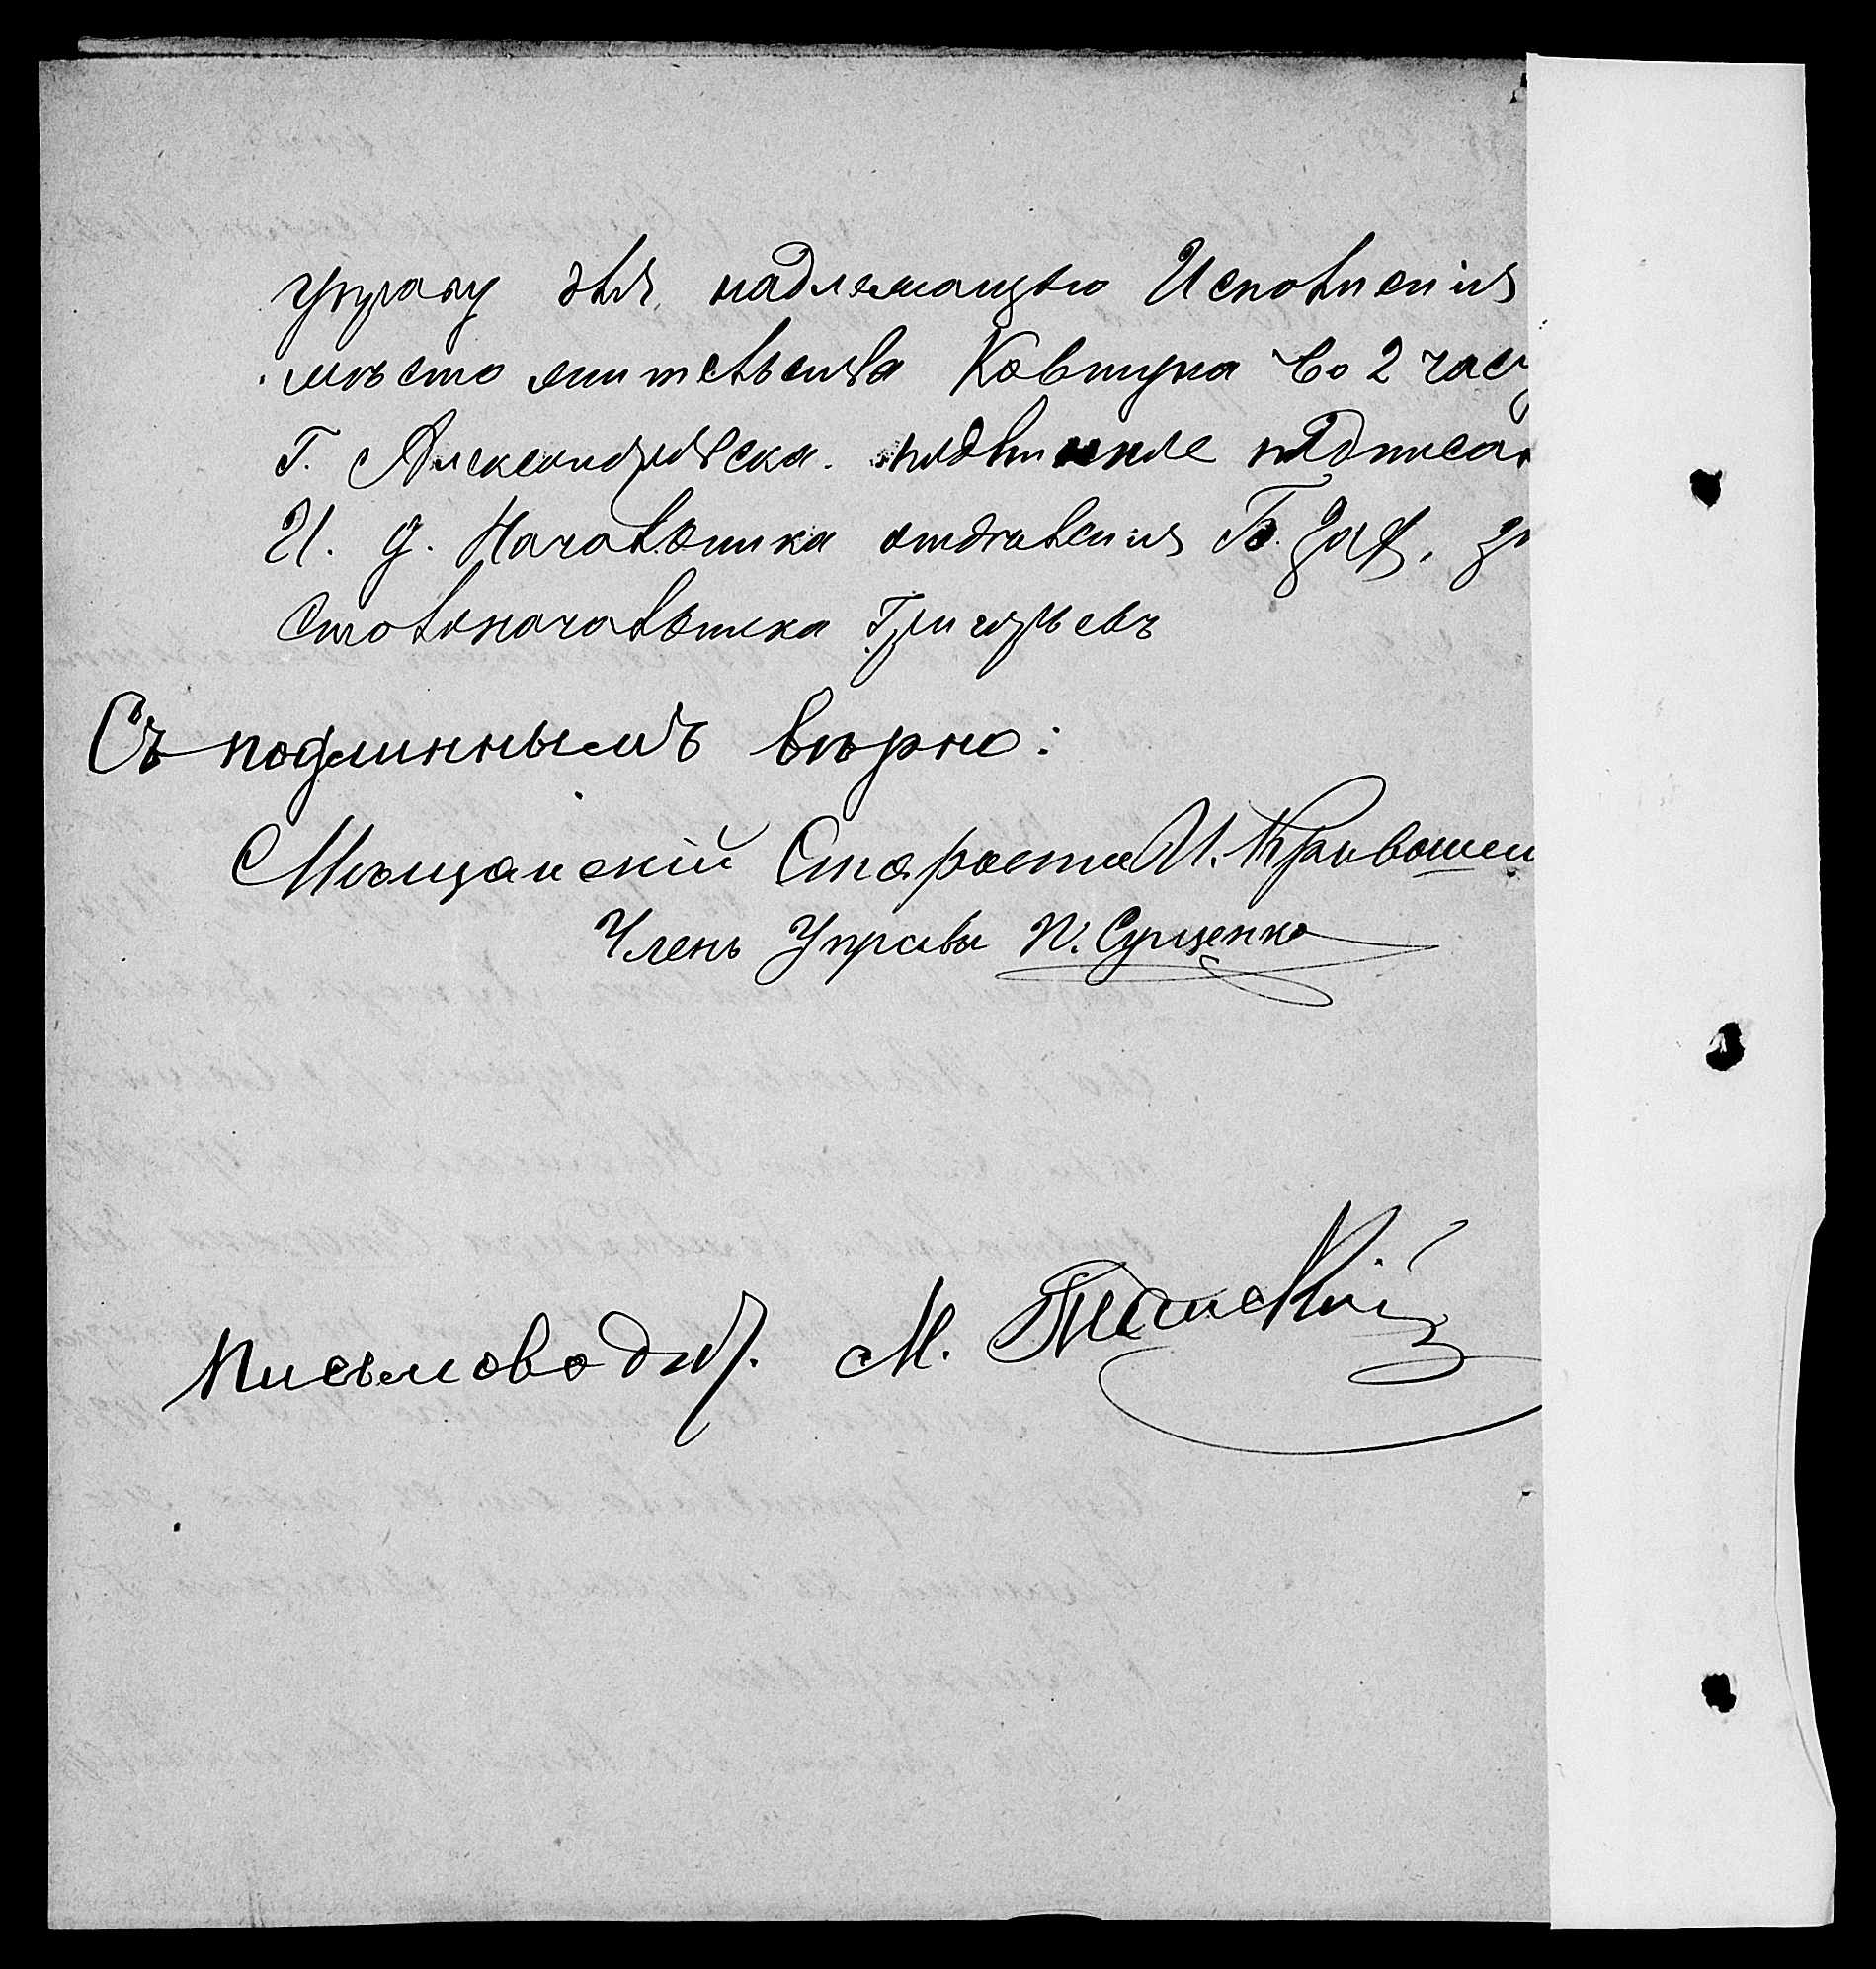 управу для надлежащего Исполнения
мѣсто жительства Ковтуна во 2 част
г. Александровска. подлинное подписа
И. д. Начальника отдѣления
Столоначальника Григорьевъ
Съ подлиннымъ вѣрно:
Мѣщанскій Староста И. Кривошеи
Членъ Управы И. Сущенко
Письмоводит. М.